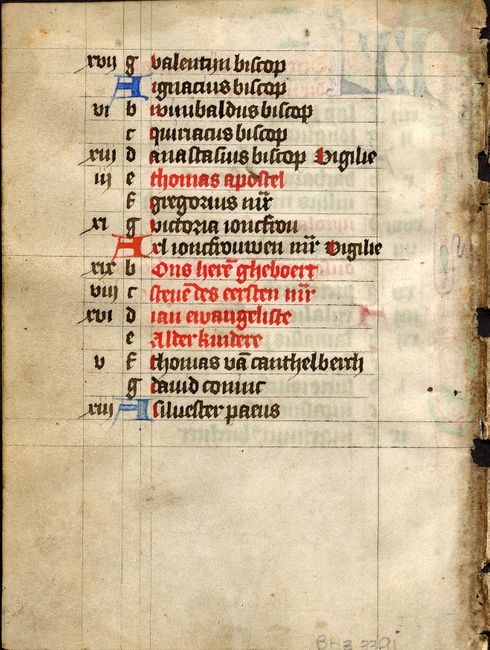 xvij g valentijn biscop
A ignacius biscop
vi b wunibaldus biscop
c quiriacus biscop
xiiij d anastasius biscop Vigilie
iij e thomas apostel
f gregorius mr̄
xi g victoria ioncfrou
A xl ioncfrouwen mr̄ Vigilie
xix b Ons herē gheboert
viij c steuē des eersten mr̄
xvi d ian ewangeliste
e Alder kindere
v f thomas vā canthelberch
g dauid coninc
xiij A siluester paeus